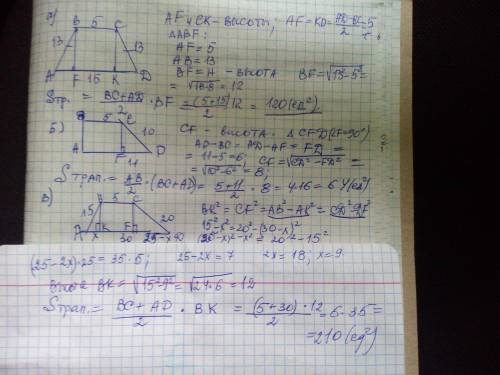 а)
B 5 C
13 13
A F 15 K D
AF и CK - высоты; AF = KD = (AD-BC)/2 = 5
ΔABF:
AF = 5
AB = 13
BF = H - высота BF = √13²-5² =
= 12
Sтр. = (BC+AD)/2 · BF = (5+15)/2 12 = 120 (ед²)
б)
B 5 C
10
A F D
11
CF - высота. ΔCFD (∠F=90°)
AD-BC = AD-AF = FD =
= 11-5 = 6; CF = √CD²-FD² =
= √10²-6² = 8;
Sтрап. = AB/2 · (BC+AD) = (5+11)/2 · 8 = 4·16 = 64 (ед²)
в)
B 5 C
15 20
A x K 30 F 25-x
BK² = CF² = AB²-AK² = CD²-DF²
15²-x² = 20²-(30-x)²
-x² = 20²-15²
(25-2x)·25 = 35·5; 25-2x = 7 2x = 18; x = 9.
BK = √15²-9² = √24·6 = 12
Sтрап. = (BC+AD)/2 · BK = (5+30)·12/2 = 6·35 =
= 210 (ед²)